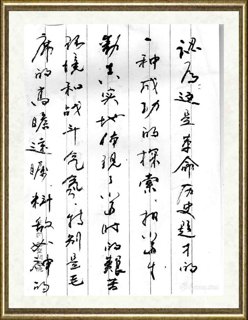 认为这是革命历史题才的
一种成功的探索.相当生
动真实地体现了当时的艰苦
环境和战斗气氛.特别是毛
席的高瞻远瞩.料敌如神的